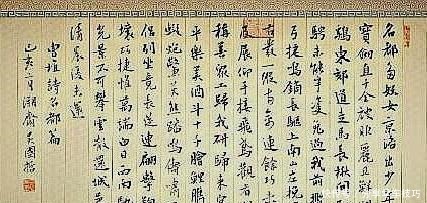 名都多妖女京洛出少年
寶劍直千金被服麗且鮮
鷄東郊道走馬長楸間
騁未能半雙兔過我前
弓捷鳴鏑長驅上南山左挽
右發一縱兩禽連餘巧未
展仰手接飛鳶觀者
稱善衆工歸我妍歸來宴
平樂美酒斗十千膾鯉臇
炮鱉炙熊蹯鳴儔嘯
侶列坐竟長筵連翩擊鞠
壤巧捷惟萬端白日西南馳
光景不可攀雲散還城邑
清晨復來還
曹植詩名都篇
己亥二月湖齋吳國哲
技巧